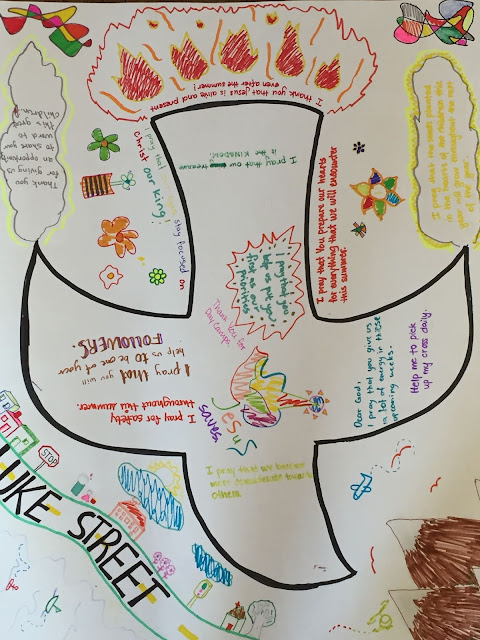 I thank you that Jesus is alive and present
even after the summer!
Thank you
for giving us
an opportunity
to share your
word to
this good
children.
I pray that the seeds planted
in the hearts of the children this
year will grow throughout the rest
of the year.
I pray that
stay focused on
Christ our King!
I pray that our treasure
is the KINGDOM!
I pray that You prepare our hearts
for everything that we will encounter
this summer.
I pray that you
help us put you
first as our
priorities
Thank You for
Day Camps
I pray that you will
help us to be one of your
FOLLOWERS
I pray for safety
throughout this summer.
Jesus
saves
Dear God,
I pray that you give us
a lot of energy in these
upcoming weeks.
Help me to pick
up my cross daily.
I pray that we become
more considerate towards
others.
STOP
LUKE STREET